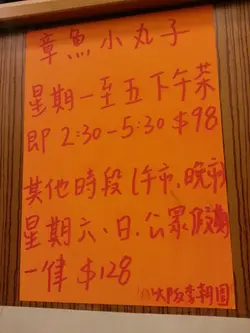 章魚小丸子
星期一至五下午茶
即 2:30-5:30 $98
其他時段(午市、晚市)
星期六、日、公眾假期
一律 $128
大阪李朝園